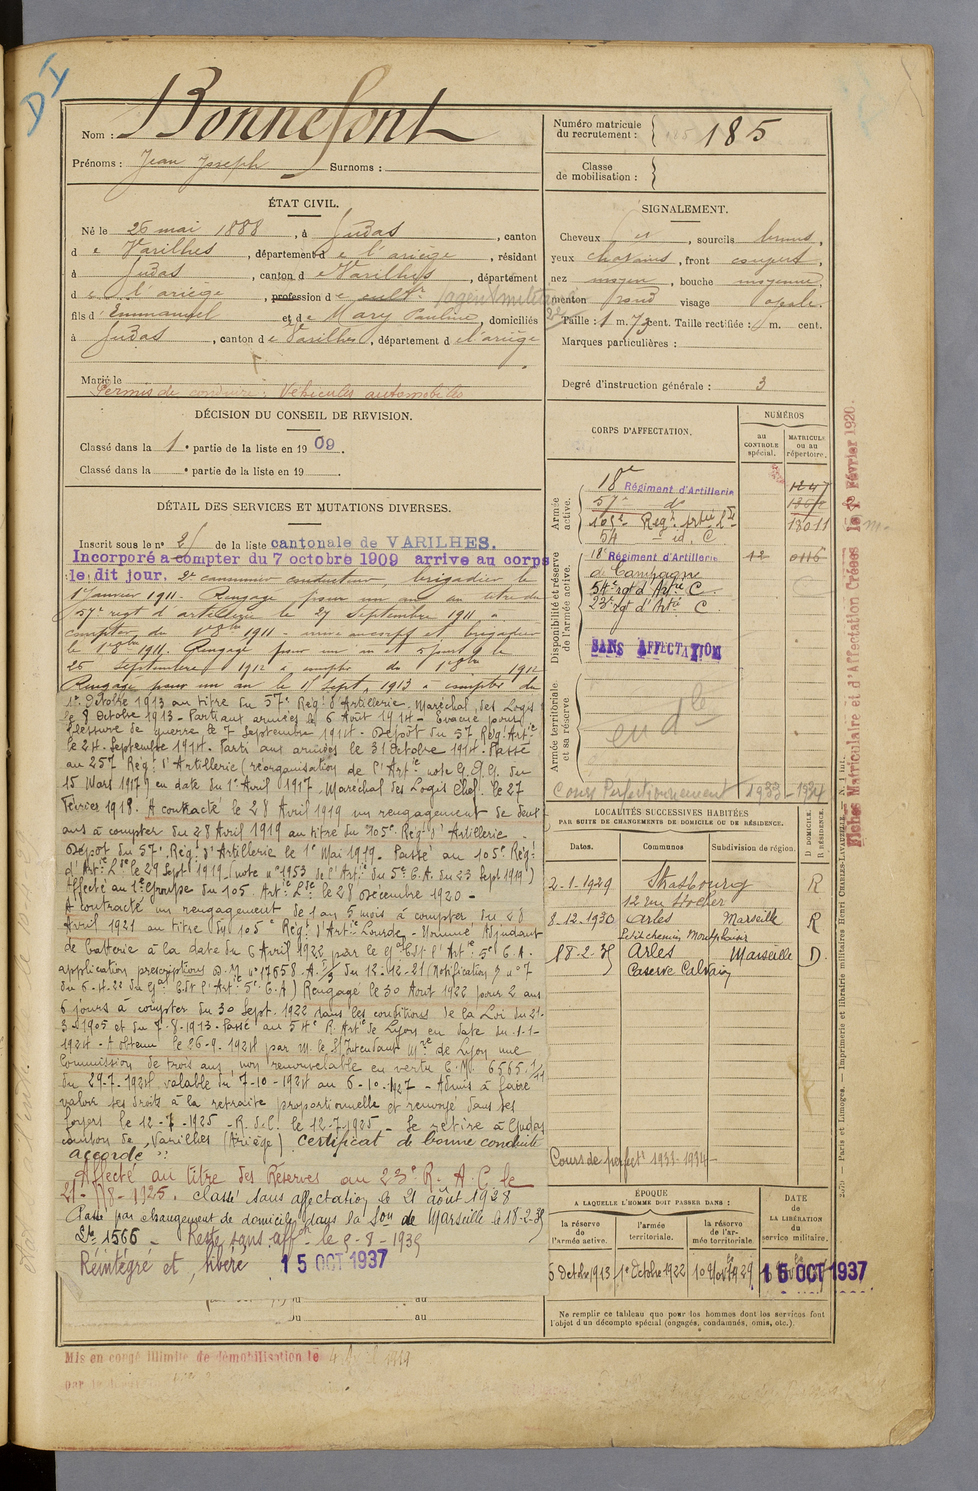 DI
Nom : Bonnefont
Prénoms : Jean Joseph Surnoms :
Numéro matricule du recrutement : 185
Classe de mobilisation :
ÉTAT CIVIL.
Né le 26 mai 1888, à Gudas, canton
de Varilhes, département de l'ariège, résidant
à Gudas, canton de Varilhes, département
de l'ariège, profession de cultr agent militaire
fils d'Emmanuel et de Mary Pauline, domiciliés
à Gudas, canton de Varilhes, département de l'ariège
Marié le
Permis de conduire : Véhicules automobiles
SIGNALEMENT.
Cheveux et, sourcils bruns,
yeux chatains, front
nez moyen, bouche moyenne,
menton rond visage ovale.
Taille : 1 m. 73 cent. Taille rectifiée : m. cent.
Marques particulières :
Degré d'instruction générale : 3
DÉCISION DU CONSEIL DE REVISION.
Classé dans la 1e partie de la liste en 1909.
Classé dans la e partie de la liste en 19
DÉTAIL DES SERVICES ET MUTATIONS DIVERSES.
Inscrit sous le no 2 de la liste cantonale de VARILHES.
Incorporé à compter du 7 octobre 1909 arrive au corps
le dit jour. 2e canonnier conducteur, brigadier le
1er Janvier 1911. Rengagé pour un an au titre du
57e regt d'artillerie le 27 Septembre 1911 à
compter du 1er 8bre 1911 - et brigadier
le 1er 8bre 1911. Rengagé pour un an et 5 jours le
26 Septembre 1912 à compter du 1er 8bre 1912
Rengagé pour un an le 1er Sept. 1913 à compter du
1er Octobre 1913 au titre du 57e Régt d'Artillerie. Maréchal des Logis
le 9 Octobre 1913 - Parti aux armées le 6 Août 1914 - Evacué pour
blessure de guerre le 7 Septembre 1914. Dépôt du 57 Régt Artie
le 24 Septembre 1914. Parti aux armées le 31 Octobre 1914. Passé
au 257 Régt d'Artillerie (réorganisation de l'Artie note G.Q.G. du
15 Mars 1917) en date du 1er Avril 1917. Maréchal des Logis Chef le 27
Février 1918. A contracté le 28 Avril 1919 un rengagement de deux
ans à compter du 28 Avril 1919 au titre du 105e Régt d'Artillerie.
Dépôt du 57e Régt d'Artillerie le 1er Mai 1919. Passé au 105e Régt
d'Artie Lde le 29 Sept 1919 (note no 1953 de l'Artie du 5e C.A. du 23 Sept 1919)
Affecté au 1er Groupe du 105 Artie Lde le 28 Décembre 1920 -
A contracté un rengagement de 1 an 5 mois à compter du 28
Avril 1921 au titre du 105e Régt d'Artie Lourde - Nommé Adjudant
de batterie à la date du 6 Avril 1922 par le Gal Cdt l'Artie 5e C.A.
application prescriptions D.M. no 17658.A. 1/3 du 12-12-21 (Notification no 7
du 6-4-22 du Gal Cdt l'Artie 5e C.A) Rengagé le 30 Août 1922 pour 2 ans
6 jours à compter du 30 Sept. 1922 dans les conditions de la Loi du 21-
3-1905 et du 7-8-1913. Passé au 54e R. Artie de Lyon en date du 1-1-
1924 - A obtenu le 26-9-1924 par M. le S/Intendant Mre de Lyon une
Commission de trois ans, non renouvelable en vertu C.M. 6565.1/11
du 29-7-1924 valable du 7-10-1924 au 6-10-1927 - Admis à faire
valoir ses droits à la retraite proportionnelle et renvoyé dans ses
foyers le 12-7-1925 - R. d. C. le 12-7-1925 - Se retire à Gudas
canton de Varilhes (Ariège) Certificat de bonne conduite
accordé.
Affecté au titre des Réserves au 23e R. A. C. le
21-8-1925. Classé sans affectation le 21 août 1928
Passé par changement de domicile dans la Son de Marseille le 18-2-35
1566 - Reste sans affon le 9-8-1935
Réintégré et libéré 15 OCT 1937
Du au
Mis en congé illimité de démobilisation le
CORPS D'AFFECTATION.
NUMÉROS
au CONTROLE spécial.
MATRICULE ou au répertoire.
Armée active.
18e Régiment d'Artillerie 1247
57e do
105e Régt Artie Lde 13011
54 - id. C.
Disponibilité et réserve de l'armée active.
18e Régiment d'Artillerie 12 0116
de Campagne
54e rgt d'Artie C.
23e rgt d'Artie C.
SANS AFFECTATION
Armée territoriale et sa réserve
en dle
Cours Perfectionnement 1933-1934
LOCALITÉS SUCCESSIVES HABITÉES
PAR SUITE DE CHANGEMENTS DE DOMICILE OU DE RÉSIDENCE.
Dates. Communes Subdivision de région. D. DOMICILE. R. RÉSIDENCE.
2-1-1929 Strasbourg R
8-12-1930 Arles Marseille R
Petit chemin Montplaisir
18-2-35 Arles Marseille D
Caserne Calvain
Cours de perfectt 1933-1934 -
ÉPOQUE
A LAQUELLE L'HOMME DOIT PASSER DANS :
la réserve de l'armée active.
l'armée territoriale.
la réserve de l'armée territoriale.
DATE de LA LIBÉRATION du service militaire.
5 Octbre 1913 1er Octobre 1922 15 OCT 1937
Ne remplir ce tableau que pour les hommes dont les services font
l'objet d'un décompte spécial (engagés, condamnés, omis, etc.)
Fiches Matriculaire et d'Affectation Créées le 1er Février 1920.
Paris et Limoges. — Imprimerie et librairie militaires Henri CHARLES-LAVAUZELLE.